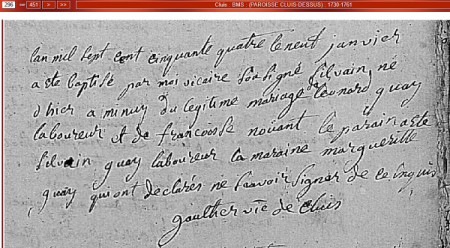 296 sur 451 > >>
Cluis : BMS : (PAROISSE CLUIS-DESSUS) : 1738-1761
lan mil sept cent cinquante quatre le neuf janvier
a este baptisé par moi vicaire soussigné silvain né
d hier a minuy du legitime mariage leonord guay
laboureur et de francoisse nouant le parain a este
silvain guay laboureur la maraine margueritte
guay qui ont declarés ne scavoir signer de ce inquis
gaulhier vic de Cluis